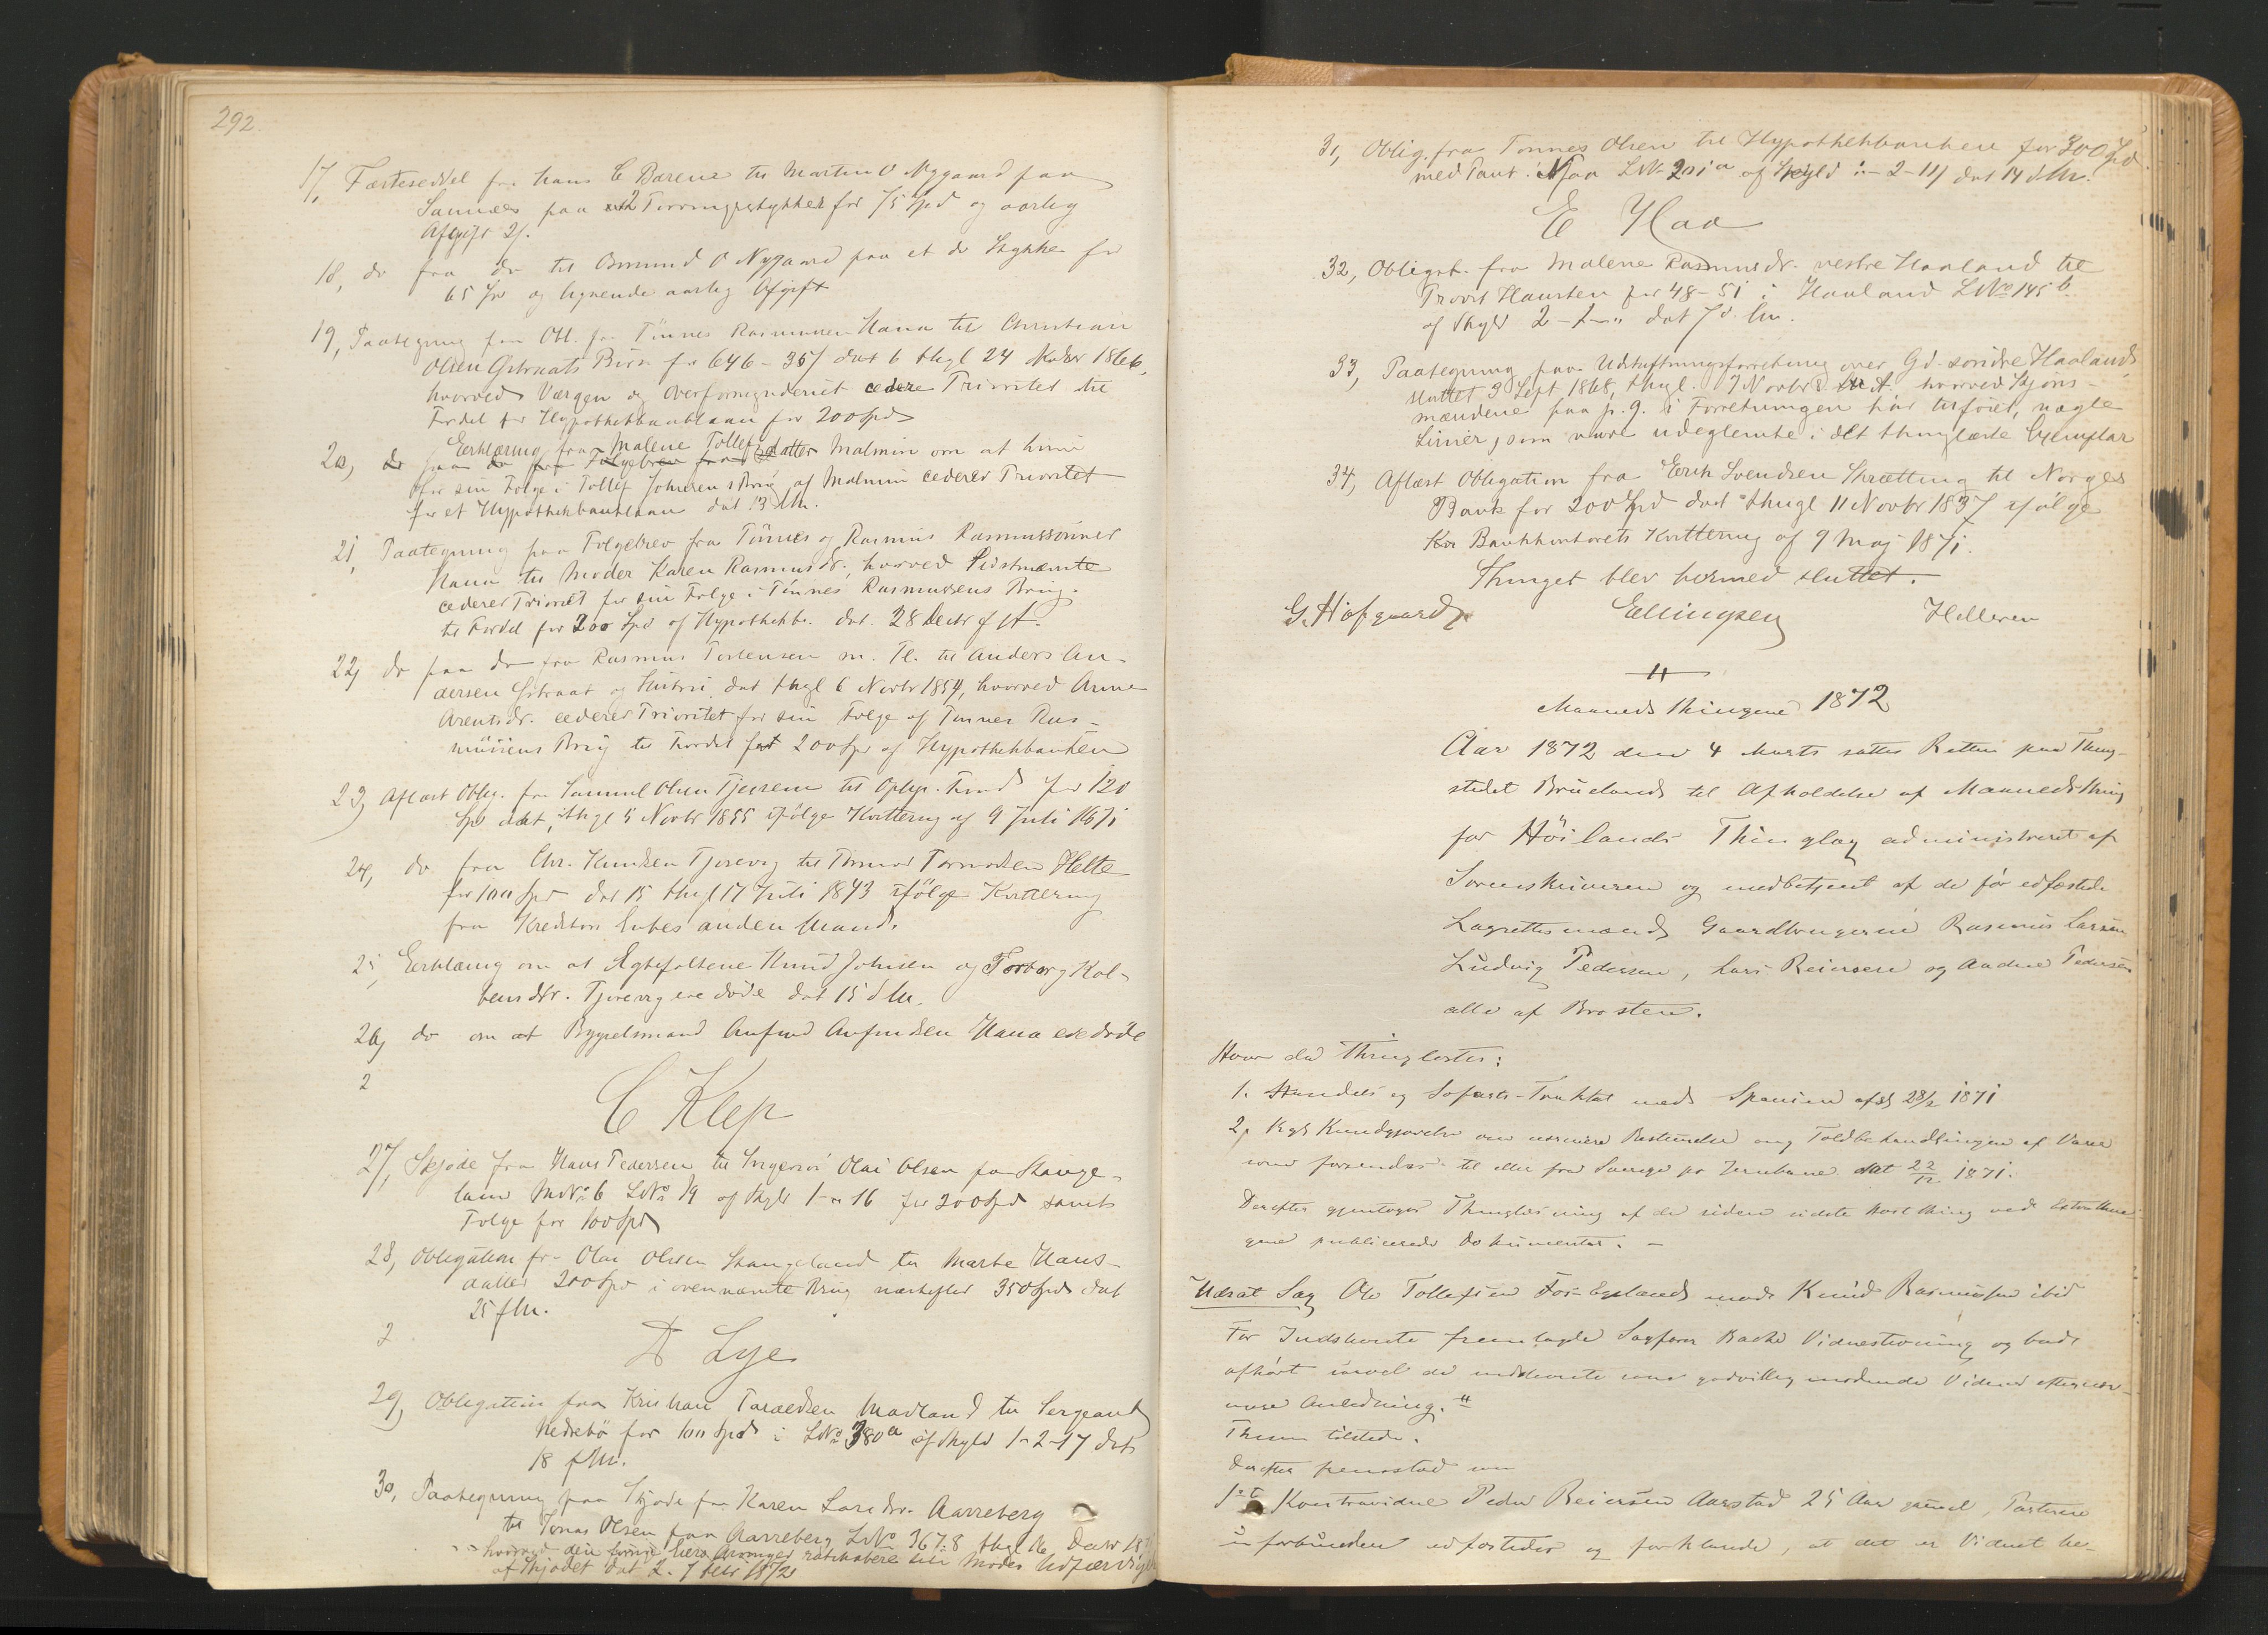 292.
17, Fæsteseddel fra Hans C Børene til Martin O Nygaard paa
Sannæs paa 2 Torvmyrstykker for 75 Spd og aarlig
Afgift 2/.
18, do fra do til Osmund O Nygaard paa et do Stykke for
65 Spd og lignende aarlig Afgift
19, Paategning paa Obl. fra Tönnes Rasmussen Hana til Christian
Olsen Gstraats Börn for 646-35/ dat 6 thgl 24 1866,
hvorved Værgen og Overformynderiet cedere Prioritet til
Fordel for Hypothekbanklaan for 200 Spd
20, Erklæring fra Malene Tollefsdatter Malmin om at hun
for sin Folge i Tollef Johnsens Brug af Malmin cederer Prioritet
for et Hypothekbanklaan dat 13 d M.
21, Paategning paa Folgebrev fra Tönnes og Rasmus Rasmussönner
Hana til Moder Karen Rasmusdr., hvorved Sidstnævnte
cederer Prioritet for sin Folge i Tönnes Rasmussens Brug
til Fordel for 200 Spd af Hypothekb. dat. 28 Decbr f A.
22, do paa do fra Rasmus Torkensen m. Fl. til Anders An-
dersen Gstraat og Hustru, dat thgl 6 Novbr 1854, hvorved Anne
Arentsdr. cederer Prioritet for sin Folge af Tönnes Ras-
mussens Brug til Fordel for 200 Spd af Hypothekbanken
23, Aflæst Oblig. fra Samuel Olsen Tjessem til Oplysn. Fond for 120
Spd dat, thgl 5 Novbr 1855 ifölge Kvittering af 9 Juli 1871
24, do fra Chr. Knudsen Tjorevig til Tormod Tormodsen Helle
for 100 Spd dat 15 thgl 17 Juli 1843 ifölge Kvittering
fra Kreditors Enkes anden Mand.
25, Erklæring om at Ægtefolkene Knud Johnsen og Torborg Kol-
bensdtr. Tjorevig ere döde dat 15 d M.
26, do om at Bygselmand Anfind Anfindsen Hana er död
2
C Klep
27, Skjöde fra Hans Pedersen til Svigersön Olai Olsen paa Stange-
land MNo 6 LNo 19 af Skyld 1-"-16 for 200 Spd samt
Folge for 100 Spd
28, Obligation fra Olai Olsen Stangeland til Marte Hans-
datter 200 Spd i ovennævnte Brug næstefter 350 Spd dat
25 f M.
2
D Lye
29, Obligation fra Kristian Taraldsen Madland til Sergeant
Nedrebö for 100 Spd i LNo 380a af Skyld 1-2-17 dat
18 f M.
30, Paategning paa Skjöde fra Karen Larsdr. Aarreberg
til Jonas Olsen paa Aarreberg LNo 367:8 thgl 16 Decbr 18
hvorved den Arvinger ratihabere sin Moders Udfærdigelse
af Skjödet dat 2. 7 1872
31, Oblig. fra Tönnes Olsen til Hypothekbanken for 300 Spd
med Pant i LNo 201a af Skyld "-2-11/ dat 14 d M.
E Haa
32, Obligat. fra Malene Rasmusdr. vestre Haaland til
Provst Hansten for 48-51 i Haaland LNo 145b
af Skyld 2-1-" dat 7 d. M.
33, Paategning paa Udskiftningsforretning over Gd. söndre Haaland
sluttet 3 Sept 1868, thgl. 7 Novbr s. A. hvorved Skjöns-
mændene paa p. 9. i Forretningen har tilföiet, nogle
Linier, som vare udeglemte i det thinglæste Exemplar
34, Aflæst Obligation fra Erik Svendsen Skrætting til Norges
Bank for 200 Spd dat thgl 11 Novbr 1837 ifölge
Bankkontorets Kvittering af 9 Maj 1871.
Thinget blev hermed sluttet.
G. Hofgaard Ellingsen Helleren
Maanedsthingene 1872
Aar 1872 den 4 Marts sattes Retten paa Thing-
stedet Brueland til Afholdelse af Maanedsthing
for Höilands Thinglag administreret af
Sorenskriveren og medbetjent af de för edfæstede
Lagrettesmænd Gaardbrugerne Rasmus Larsen
Ludvig Pedersen, Lars Reiersen og Andreas Pedersen
alle af Brosten.
Hvor da Thinglæstes:
1. Handels og Sofarts-Traktat med Spanien afsl 28/2 1871
2, Kgl Kundgjorelse om nærmere Bestemmelser ang Toldbehandlingen af Varer
som forsendes til eller fra Sverige pr Jernbane dat 22/12 1871.
Derefter gjentoges Thinglæsning af de siden sidste Hostthing ved Extrathin-
gene publicerede Dokumenter. -
Uærat Sag Ole Tollefsen Fos-Egeland mod Knud Rasmussen ibid
For Indstevnte fremlagde Sagforer Bache Vidnestevning og bad
afhört saavel de indstevnte som godvillig mödende Vidner efter nær-
mere Anledning. "
Thun tilstede.
Derefter fremstod som
1ste Kontravidne Peder Reiersen Aarstad 25 Aar gammel, Parterne
uforbunden edfæstedes og forklarede, at det er Vidnet be-